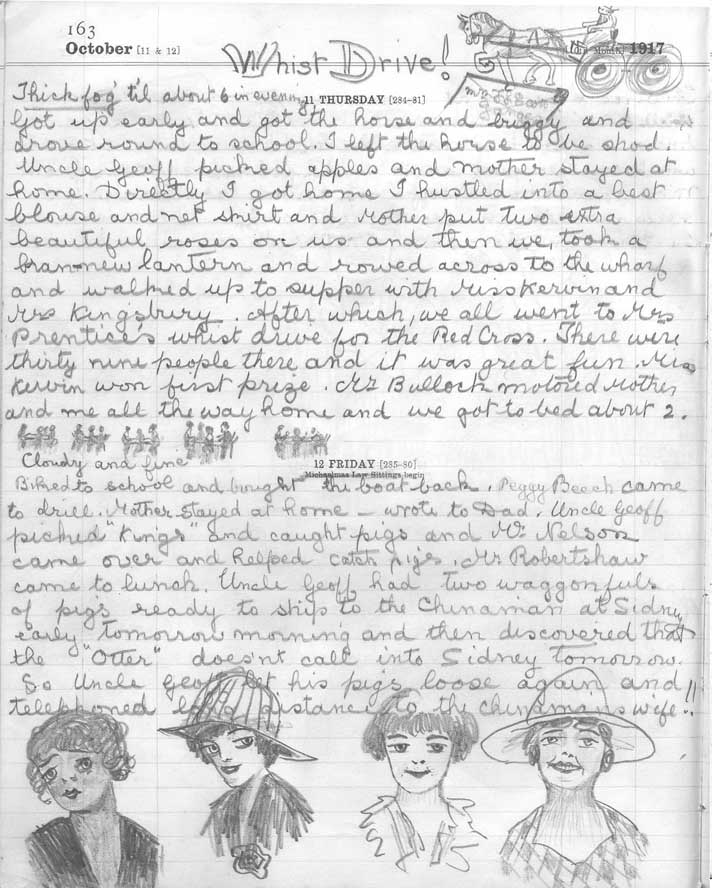 163
October [11 & 12]
1917
Whist Drive!
Thick fog til about 6 in evening
11 THURSDAY [284-81]
Got up early and got the horse and buggy and
drove round to school. I left the horse to be shod.
Uncle Geoff picked apples and mother stayed at
home. Directly I got home I hustled into a best
blouse and net skirt and Mother put two extra
beautiful roses on us and then we, took a
bran-new lantern and rowed across to the wharf
and walked up to supper with Miss Kerwin and
Mrs Kingsbury. After which, we all went to Mrs
Prentice's whist drive for the Red Cross. There were
thirty nine people there and it was great fun. Miss
Kerwin won first prize. Mr Bullock motored Mother
and me all the way home and we got to bed about 2.
Cloudy and fine
12 FRIDAY [285-80]
Michaelmas Law Sittings begin
Biked to school and bought the boat back. Peggy Beech came
to drill. Mother stayed at home - wrote to Dad. Uncle Geoff
picked "Kings" and caught pigs and Mr. Nelson
came over and helped catch pigs. Mr Robertshaw
came to lunch. Uncle Geoff had two waggonfuls
of pigs ready to ship to the Chinaman at Sidney
early tomorrow morning and then discovered that
the "Otter" does'nt call into Sidney tomorrow.
So Uncle Geoff let his pigs loose again and
telephoned long distance to the chinamans wife!!